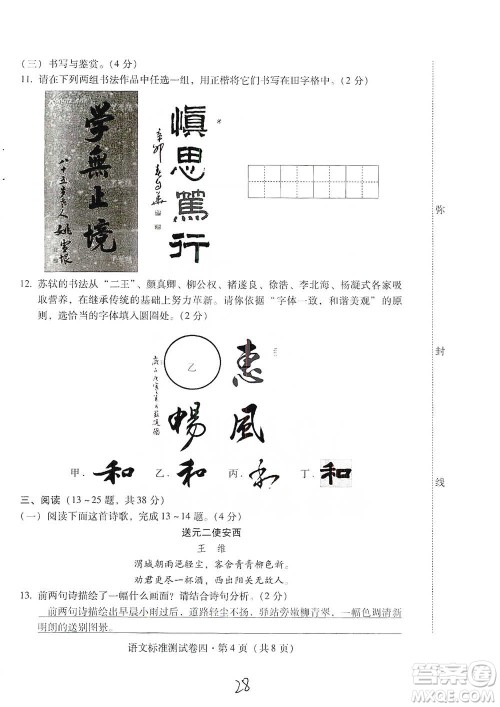 (三)书写与鉴赏。(4分)
11. 请在下列两组书法作品中任选一组，用正楷将它们书写在田字格中。(2分)
学無止境
八十五岁老人 姚雪垠
慎思篤行
辛卯
12. 苏轼的书法从“二王”、颜真卿、柳公权、褚遂良、徐浩、李北海、杨凝式各家吸
取营养，在继承传统的基础上努力革新。请你根据“字体一致，和谐美观”的原
则，选恰当的字体填入圆圈处。(2分)
乙
惠
風
暢
甲. 和 乙. 和 丙. 和 丁. 和
三、阅读(13~25题，共38分)
(一)阅读下面这首诗歌，完成13~14题。(4分)
送元二使安西
王 维
渭城朝雨浥轻尘，客舍青青柳色新。
劝君更尽一杯酒，西出阳关无故人。
13. 前两句诗描绘了一幅什么画面？(2分)
前两句诗描绘出早晨小雨过后，道路轻尘不扬，驿站旁嫩柳青翠，一幅色调清新
明朗的送别图景。
语文标准测试卷四·第4页(共8页)
28
弥
封
线